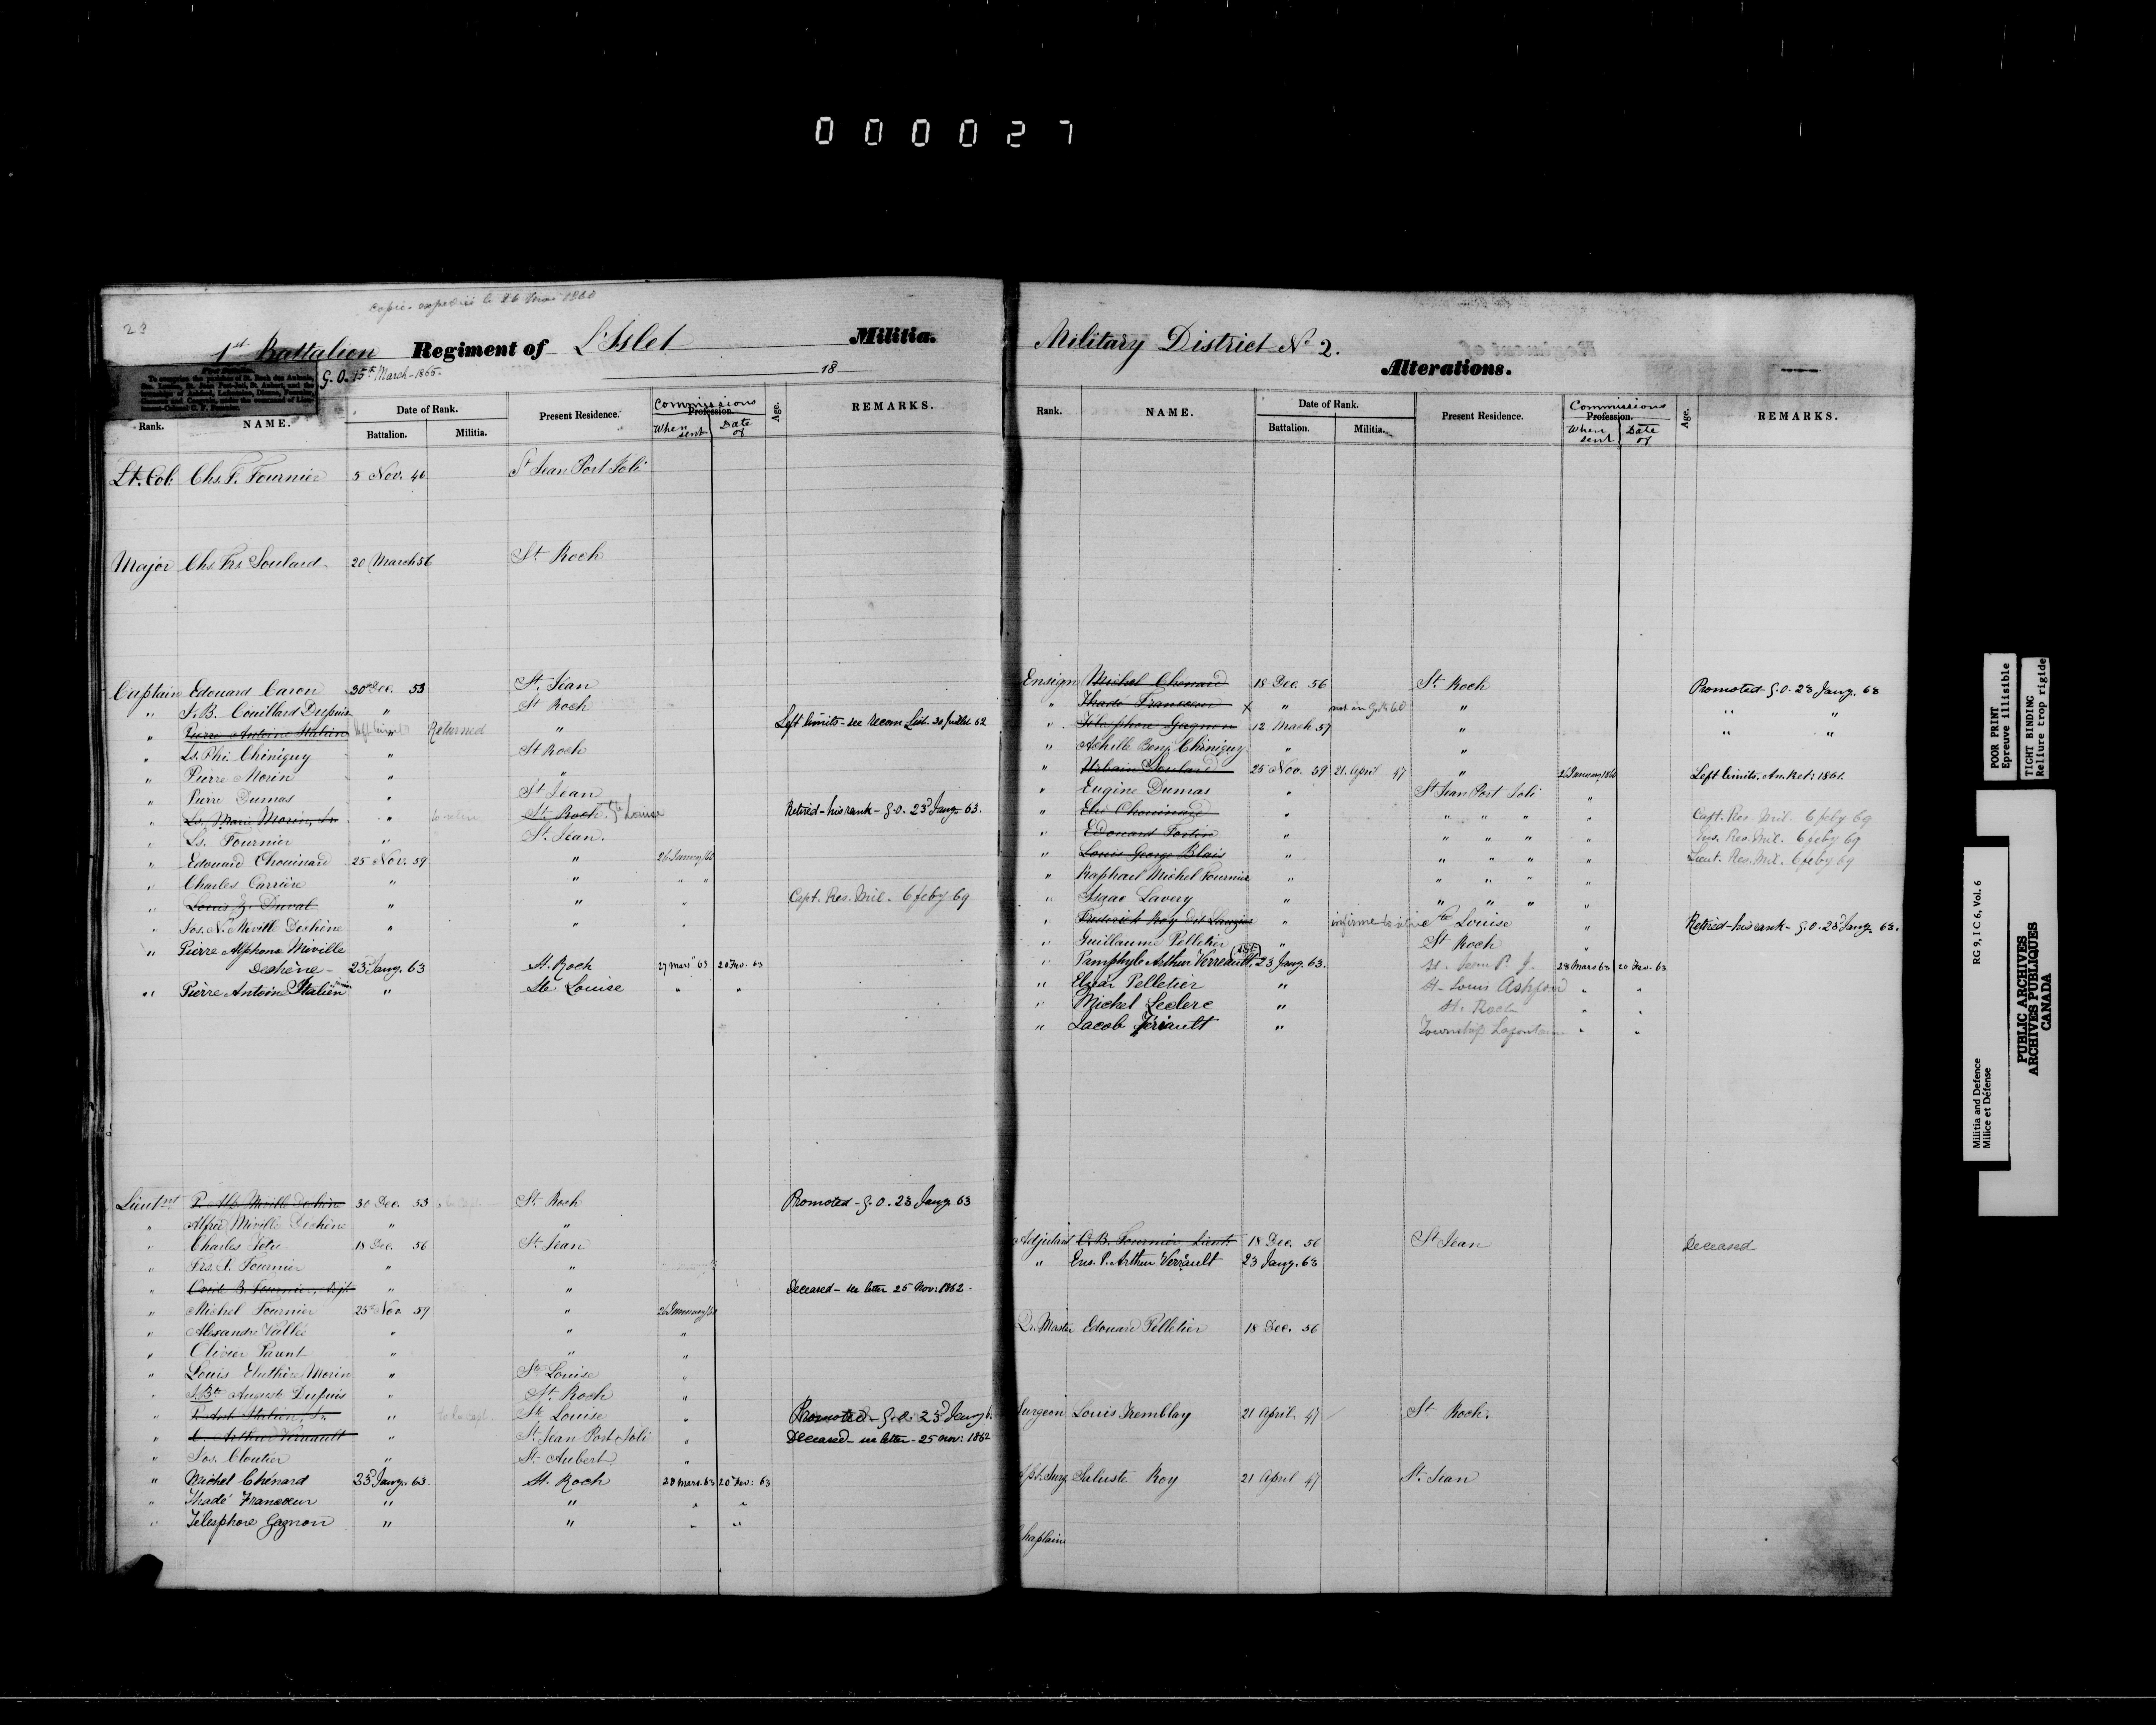 000027
23
Copie expediée le 26 Mai 1860
1st Battalion Regiment of L'Islet Militia.
G. O. 15th March 1865.
18
Rank. NAME. Date of Rank. Battalion. Militia. Present Residence. Commissions Profession. When sent Date of Age. REMARKS.
Lt. Col. Chs. F. Fournier 3 Nov. 46 St Jean Port Joli
Major Chs Frs Soulard 20 March 56 St Roch
Captain Edouard Caron 30 Dec. 53 St. Jean
" J. B. Couillard Dupuis " St Roch
" Pierre Antoine Italien left limits " Returned " Left limits - see Recom List. 30 Juillet 62
" Ls. Phi. Chiniquy " St Roch
" Pierre Morin " "
" Pierre Dumas " St Jean
" Ls. Marie Morin, Sr. " St. Roch Ste Louise Retired - his rank - G.O. 23d Jany. 63.
" Ls. Fournier " St. Jean.
" Edouard Chouinard 25 Nov. 59 " 26 January/60
" Charles Carrière " " " "
" Louis Z. Duval " " " Capt. Res. Mil. 6 feby 69
" Jos. N. Miville Deshêne " " "
" Pierre Alphonse Miville
Deshêne - 23d Jany. 63 St. Roch 27 mars 63 20 Fev. 63
" Pierre Antoine Italien " Ste Louise " "
Lieutnt P. Alp. Miville Deshêne 30 Dec. 53 St. Roch Promoted - G.O. 23 Jany. 63
" Alfred Miville Deshêne " "
" Charles Fetu 18 Dec. 56 St. Jean
" Frs. X. Fournier " "
" B. Fournier, Adjt " Deceased - see letter 25 Nov: 1862.
" Michel Fournier 25 Nov. 59 " 26 January/60
" Alexandre Vallée " " "
" Olivier Parent " " "
" Louis Eluthère Morin " Ste Louise "
" J. Bte August Dupuis " St. Roch "
" P. Ant. Italien, Jr. " to be Capt. Ste Louise " Promoted - G.O. 23d Jany 6
" Arthur Verrault " St. Jean Port Joli " Deceased - see letter - 25 Nov: 1862
" Jos. Cloutier " St. Aubert "
" Michel Chénard 23d Jany. 63. St. Roch 28 mars 63 20 Fev: 63
" Thadé Francoeur " " " "
" Télesphore Gagnon " " " "
Military District No 2.
Alterations.
Rank. NAME. Date of Rank. Battalion. Militia. Present Residence. Commissions Profession. When sent Date of Age. REMARKS.
Ensign Michel Chenard 18 Dec. 56 St. Roch Promoted G.O. 23 Jany. 63
" Thade Francoeur X " " " "
" Telesphore Gagnon 12 Mach 57 " " "
" Achille Benj. Chiniquy " "
" Urbain Soulard 25 Nov. 59 21 April 47 " 26 January 1860 Left limits. An. Ret: 1861.
" Eugène Dumas " St Jean Port Joli "
" Chouinard " " " " " Capt. Res. Mil. 6 feby 69
" Edouard Fortin " " " " " Ens. Res. Mil. 6 feby 69
" Louis George Blais " " " " " Lieut. Res. Mil. 6 feby 69
" Raphael Michel Fournier " " " " "
" Isaac Lavery " " " " "
" Frederick Roy dit Lauzier " infirme Ste Louise " Retired - his rank - G.O. 23 Jany. 63.
" Guillaume Pelletier " St Roch "
" Pamphyle Arthur Verreault 23 Jany. 63. St. Jean P. J. 28 Mars 63 20 Fev. 63
" Elzéar Pelletier " St. Louis Ashford " "
" Michel Leclerc " St. Roch " "
" Jacob Fériault " Township Lafontaine " "
Adjutant B. Fournier Lieut. 18 Dec. 56 St Jean Deceased
" Ens. P. Arthur Verrault 23 Jany. 63
Qr. Master Edouard Pelletier 18 Dec. 56
Surgeon Louis Tremblay 21 April 47 St Roch.
Asst. Surg. Saluste Roy 21 April 47 St. Jean
Chaplain
POOR PRINT
Epreuve illisible
TIGHT BINDING
Reliure trop rigide
Militia and Defence
Milice et Défense
RG 9, I C 6, Vol. 6
PUBLIC ARCHIVES
ARCHIVES PUBLIQUES
CANADA